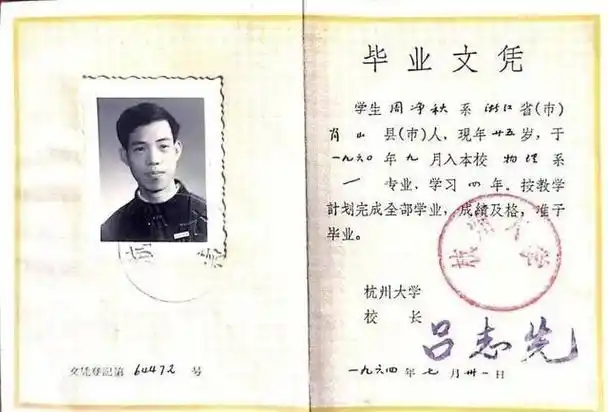 毕业文凭
学生 周净秋 系 浙江 省(市)
肖山 县(市)人，现年 廿五 岁，于
一九六〇 年 九 月入本校 物理 系
一 专业，学习 四 年。按教学
計划完成全部学业，成绩及格，准予
毕业。
杭州大学
校 长 吕志先
一九六四 年 七 月 卅一 日
文凭登記第 64472 号
杭州大学